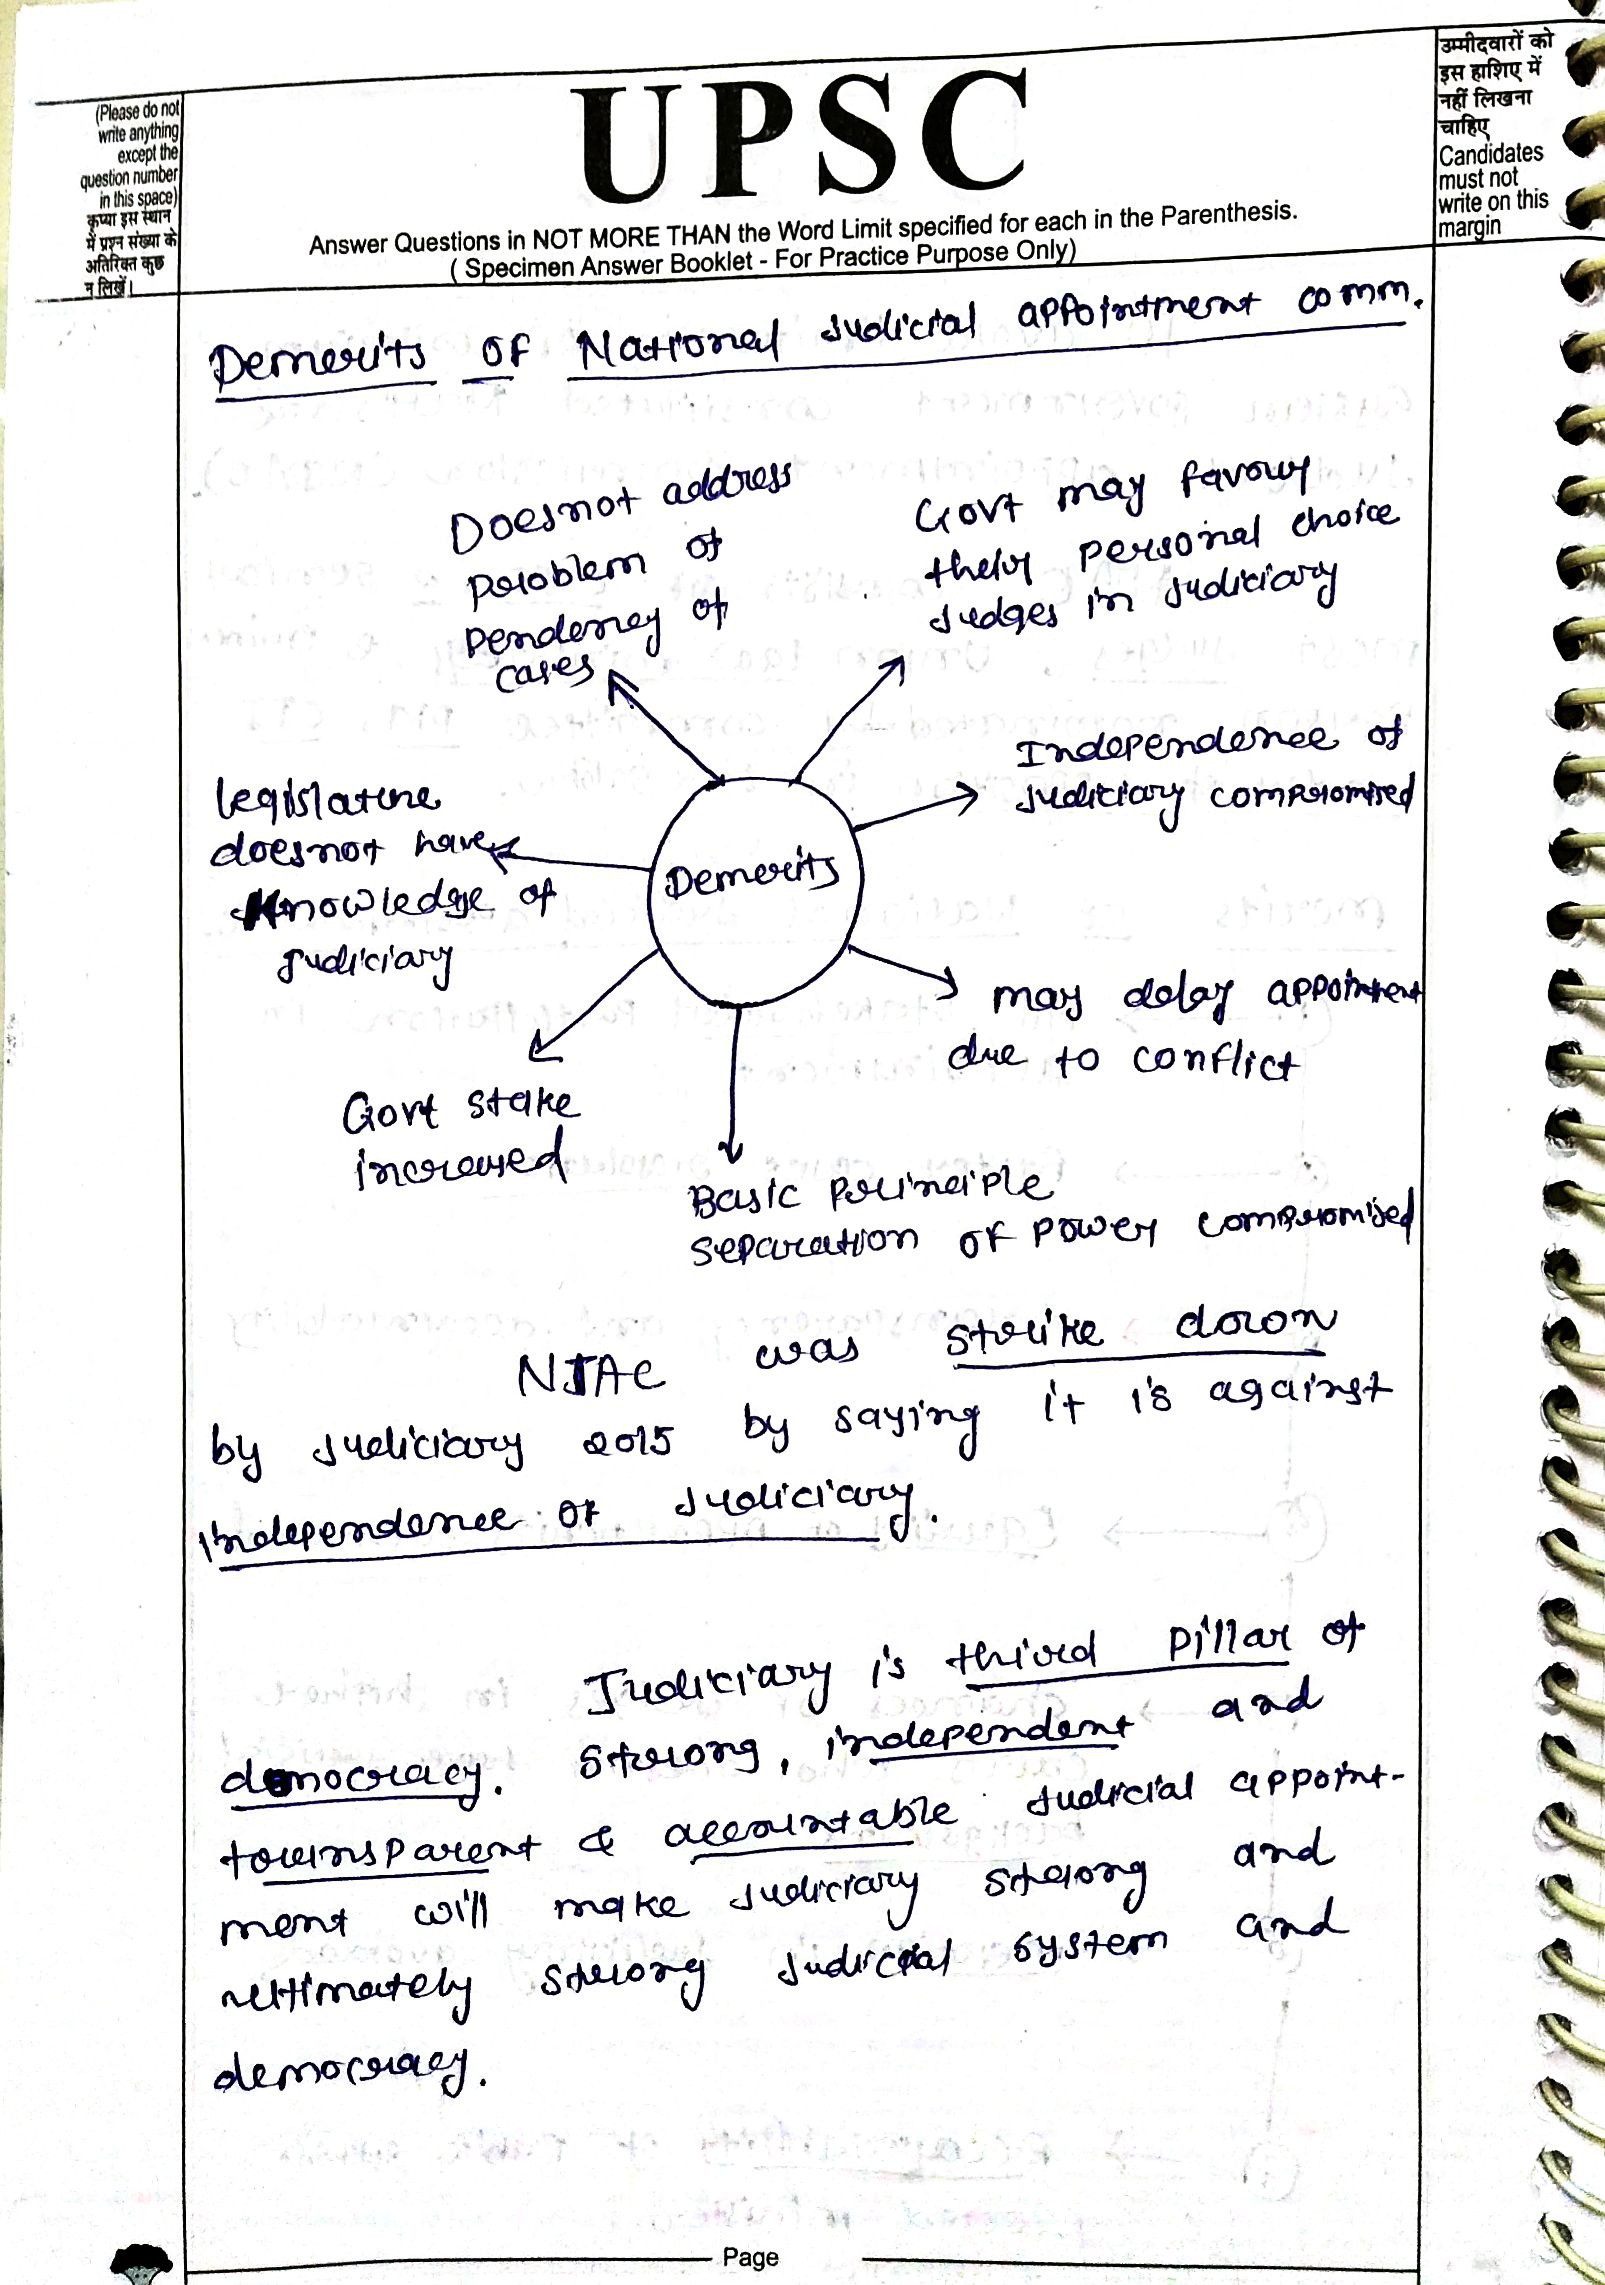 (Please do not
write anything
except the
question number
in this space)
कृप्या इस स्थान
में प्रश्न संख्या के
अतिरिक्त कुछ
न लिखें।
UPSC
Answer Questions in NOT MORE THAN the Word Limit specified for each in the Parenthesis.
( Specimen Answer Booklet - For Practice Purpose Only)
उम्मीदवारों को
इस हाशिए में
नहीं लिखना
चाहिए
Candidates
must not
write on this
margin
Demerits of National Judicial appointment comm.
Doesnot address
problem of
pendency of
cases
Govt may favour
their personal choice
Judges in Judiciary
Independence of
Judiciary compromised
legislature
doesnot have
knowledge of
Judiciary
Demerits
may delay appointment
due to conflict
Govt stake
increased
Basic principle
separation of power compromised
NJAC was strike down
by Judiciary 2015 by saying it is against
independence of Judiciary.
Judiciary is third pillar of
democracy. Strong, independent and
transparent & accountable Judicial appoint-
ment will make Judiciary strong and
ultimately strong Judicial system and
democracy.
Page